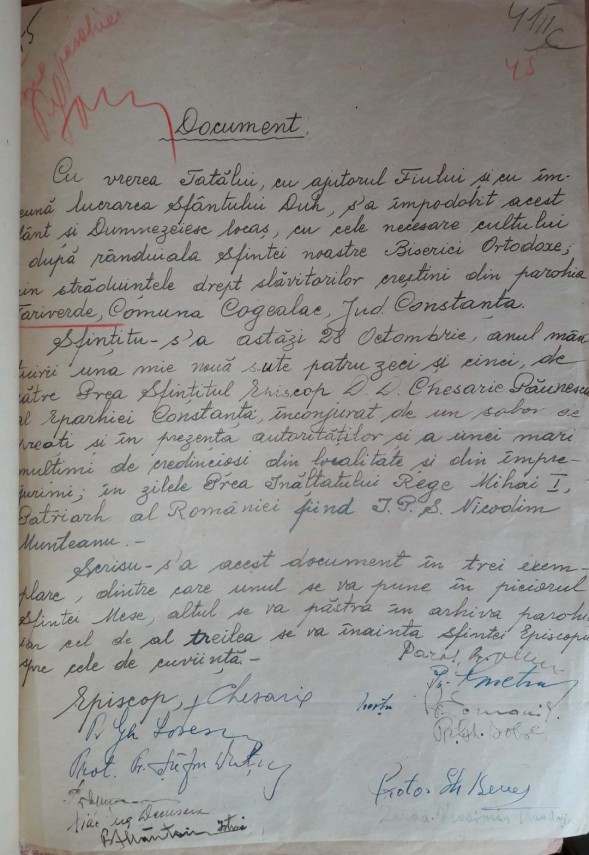 4III
45
Document.
Cu vrerea Tatălui, cu ajutorul Fiului și cu îm-
eună lucrarea Sfântului Duh, s'a împodobit acest
fânt și Dumnezeiesc locaș, cu cele necesare cultului
după rânduiala Sfintei noastre Biserici Ortodoxe,
in străduințele drept slăvitorilor creștini din parohia
Tariverde, Comuna Cogealac, Jud. Constanța.
Sfințitu-s'a astăzi 28 Octombrie, anul mân
tuirii una mie nouă sute patru zeci și cinci, de
către Prea Sfințitul Episcop D. D. Chesarie Păunescu
al Eparhiei Constanța, înconjurat de un sobor de
preoți și în prezența autorităților și a unei mari
mulțimi de credincioși din localitate și din împre-
jurimi; în zilele Prea Înălțatului Rege Mihai I,
Patriarh al României fiind I.P.S. Nicodim
Munteanu.-
Scrisu-s'a acest document în trei exem-
plare, dintre care unul se va pune în piciorul
Sfintei Mese, altul se va păstra în arhiva parohi
iar cel de al treilea se va înainta Sfintei Episcopii
spre cele de cuviință.-
Episcop, † Chesarie
Pr. Gh.
Prot. Pr.
Protos. Gh.